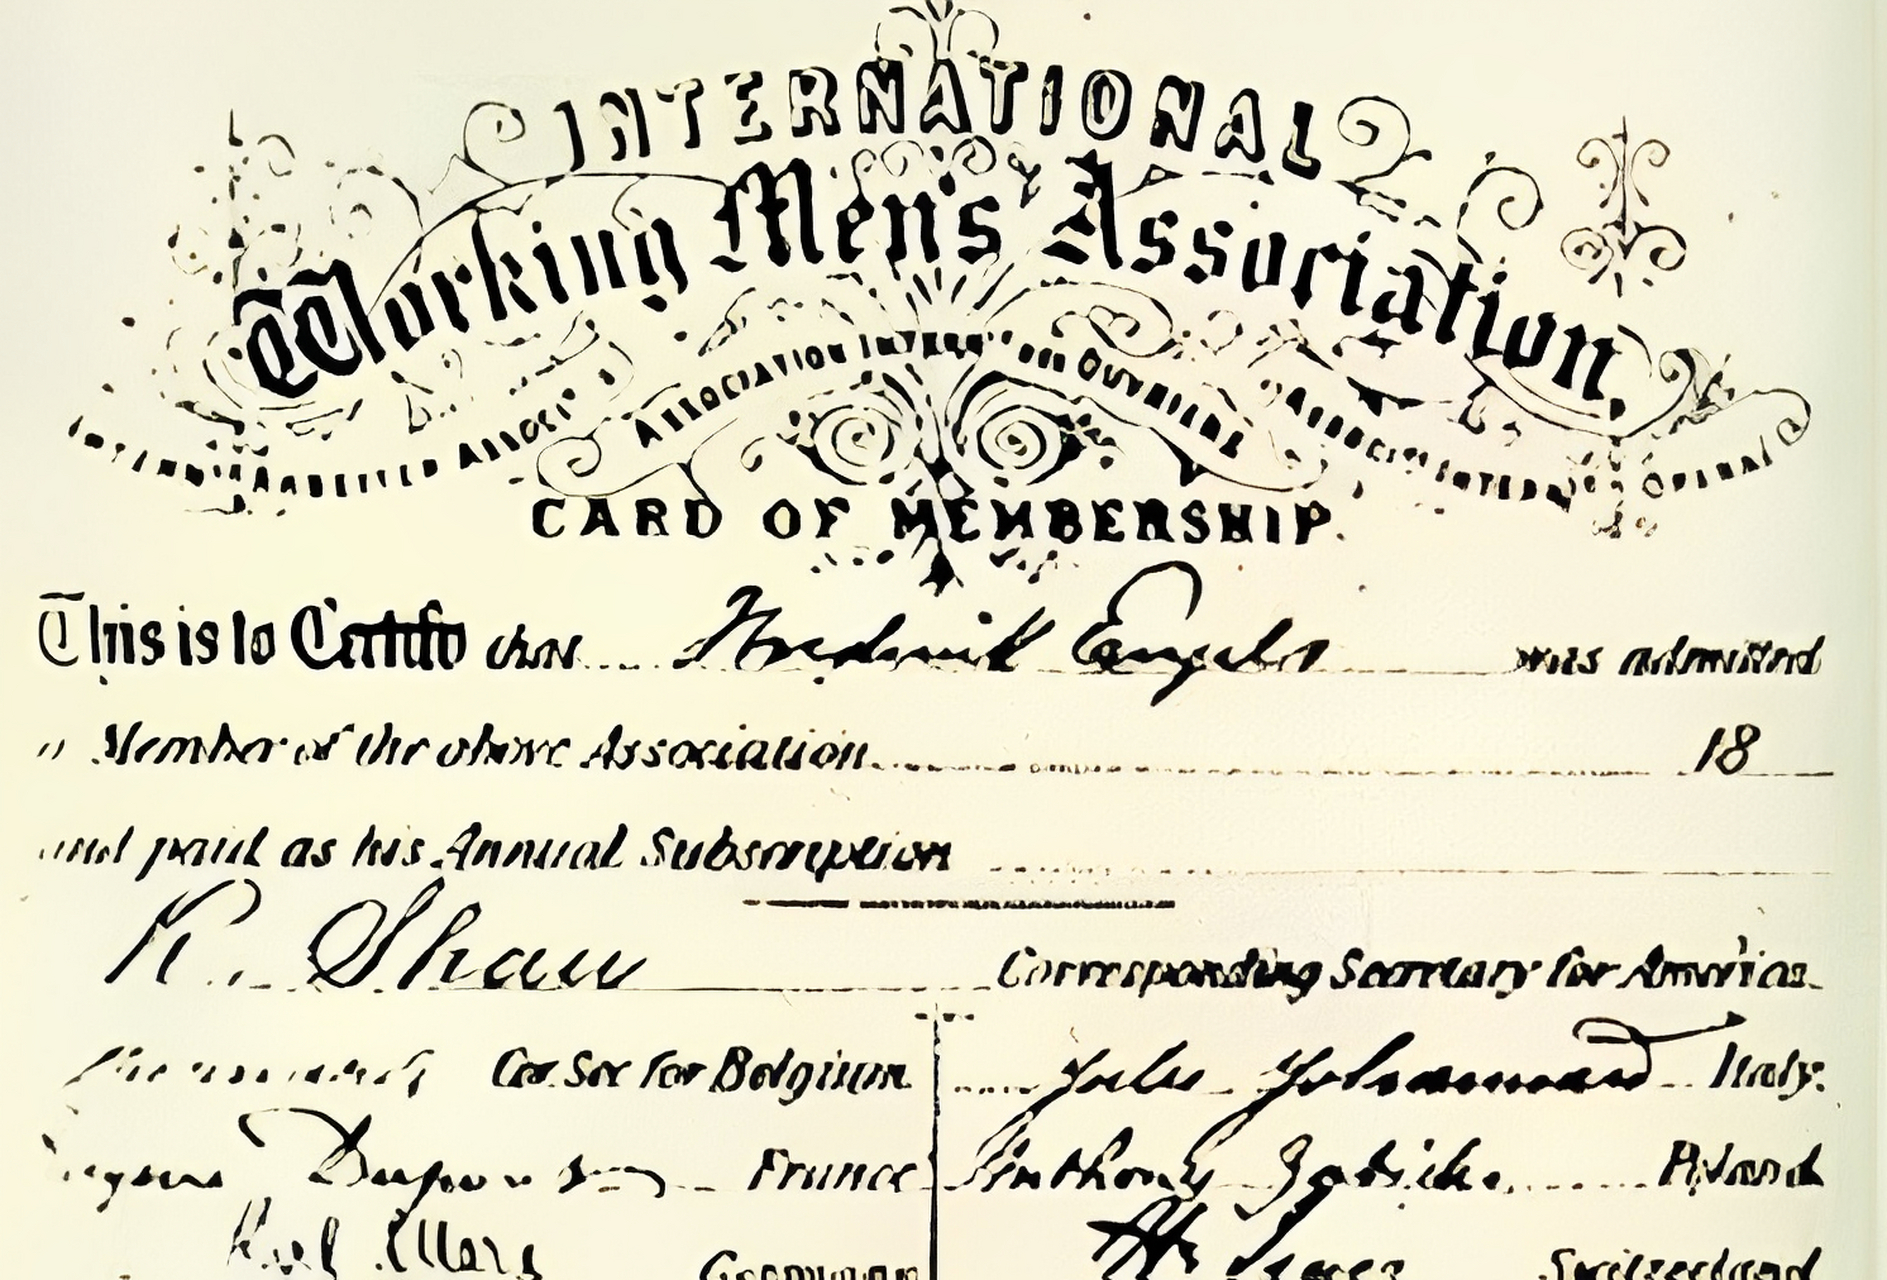 INTERNATIONAL
Working Men's Association.
ASSOCIATION
CARD OF MEMBERSHIP.
This is to Certify that Frederick Engels was admitted
a Member of the above Association 18
and paid as his Annual Subscription
R. Shaw Corresponding Secretary for America.
Cor. Sec. for Belgium Italy.
Dupont France Anthony Poland
Karl Marx Germany Switzerland